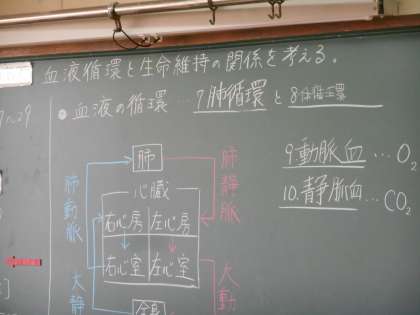 血液循環と生命維持の関係を考える。
●血液の循環…7肺循環と8体循環
9動脈血…O₂
10.静脈血…CO₂
肺
肺動脈
肺静脈
心臓
右心房 左心房
右心室 左心室
大静
大動
全身